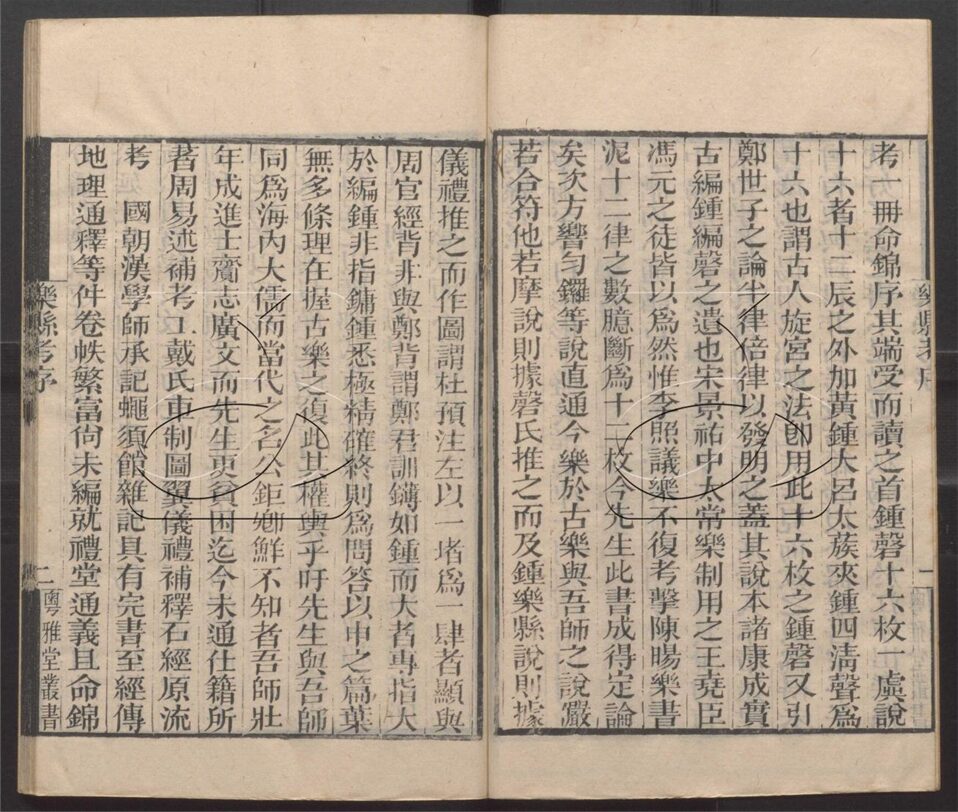 考一冊命錦序其端受而讀之首鍾磬十六枚一虡說
十六者十二辰之外加黃鍾大呂太蔟夾鍾四淸聲爲
十六也謂古人旋宮之法卽用此十六枚之鍾磬又引
鄭世子之論半律倍律以發明之蓋其說本諸康成實
古編鍾編磬之遺也宋景祐中太常樂制用之王堯臣
馮元之徒皆以爲然惟李照議樂不復考擊陳暘樂書
泥十二律之數臆斷爲十二枚今先生此書成得定論
矣次方響勻鑼等說直通今樂於古樂與吾師之說嚴
若合符他若摩說則據磬氏推之而及鍾樂縣說則據
樂縣考序
一
儀禮推之而作圖謂杜預注左以一堵爲一肆者顯與
周官經背非與鄭背謂鄭君訓鏄如鍾而大者專指大
於編鍾非指鏞鍾悉極精確終則爲問答以申之篇葉
無多條理在握古樂之復此其權輿乎吁先生與吾師
同爲海內大儒而當代之名公鉅鄕鮮不知者吾師壯
年成進士齎志廣文而先生更貧困迄今未通仕籍所
著周易述補考工戴氏車制圖翼儀禮補釋石經原流
考　國朝漢學師承記蠅須館雜記具有完書至經傳
地理通釋等件卷帙繁富尙未編就禮堂通義且命錦
樂縣考序
二
粵雅堂叢書